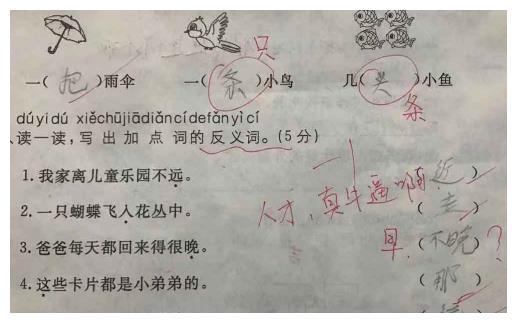 只
一(把)雨伞 一(条)小鸟 几(类)小鱼
条
dú yi dú xiě chū jiā diǎn cí de fǎn yì cí
、读一读,写出加点词的反义词。(5分)
1.我家离儿童乐园不远。 (近)
人才,真牛逼啊
2.一只蝴蝶飞入花丛中。 ()
3.爸爸每天都回来得很晚。 早 (不晚) ?
4.这些卡片都是小弟弟的。 (那)